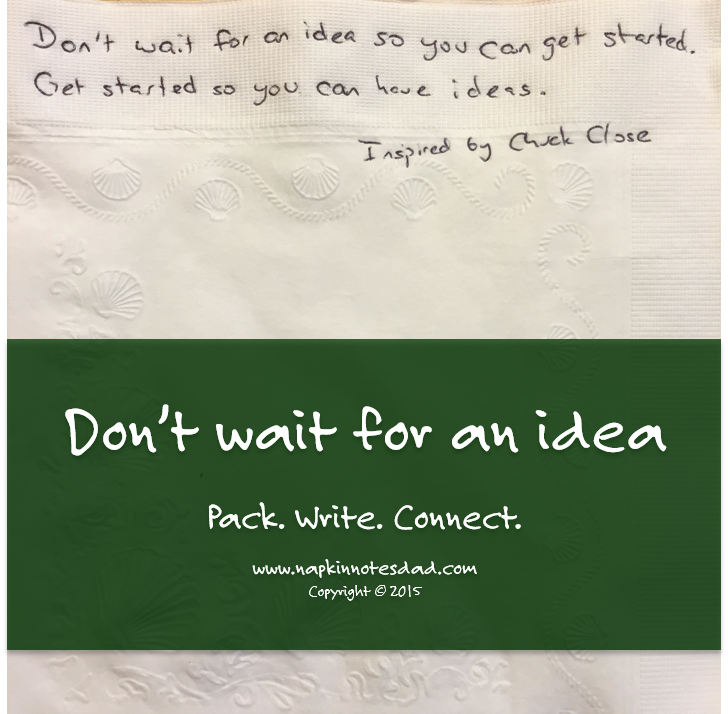 Don't wait for an idea so you can get started.
Get started so you can have ideas.
Inspired by Chuck Close
Don't wait for an idea
Pack. Write. Connect.
www.napkinnotesdad.com
Copyright © 2015